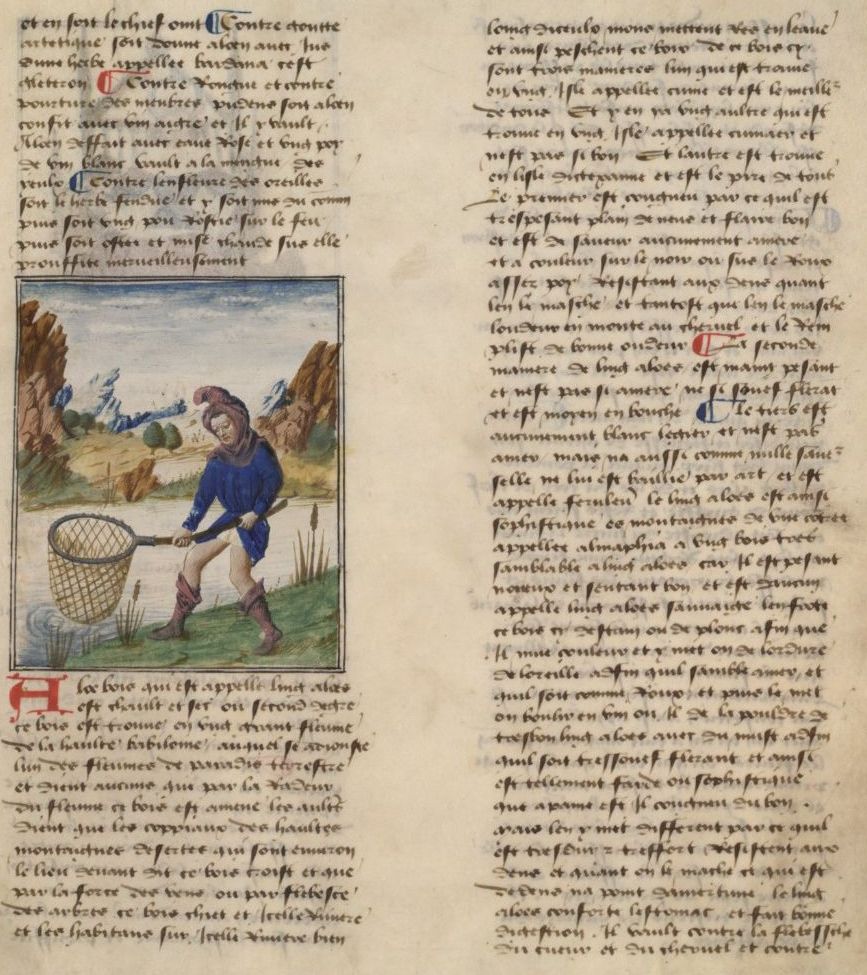 et en soit le chief oint Contre goutte
artetique soit donne aloen avec Jus
dune herbe appellee bardana cest
gleteron Contre Rongne et contre
pourture des menbres pudens soit aloen
confit avec vin aigre et Il y vault
Aloen deffait avec eaue Rose et vng poy
de vin blanc vault a la mengue des
yeulx Contre lenfleure des oreilles
soit le herbe fendue et y soit mis du comin
puis soit vng pou Rostie sur le feu
puis soit ostee et mise chaude sus elle
prouffite merveilleusement
Aloe bois qui est appelle ling aloes
est chault et sec ou second degre
ce bois est trouue en vng grant fleuue
de la haulte babilonie auquel se adiouste
lun des fleuues de paradis terrestre
et dient aucuns que par la Radeur
du fleuue ce bois est amene les aultres
dient que les coppiaux des haultes
montaignes desertes qui sont enuiron
le lieu deuant dit ce bois croist et que
par la force des vens ou par flebesce
des arbres ce bois chiet et Icelle Riuiere
et les habitans sur Icelle Riuiere bien
loing diceulx mons mettent Res en leaue
et ainsi peschent ce bois de ce bois cy
sont trois manieres lun qui est trouue
en vng Isle appellee cume et est le meilleur
de tous Et y en ya vng aultre qui est
trouue en vng Isle appellee cumaer et
nest pas si bon Et lautre est trouue
en lisle et est le pire de tout
Le premier est congneu par ce quil est
trespesant plain de neus et flaire bon
et est de saueur aucunement amere
et a couleur sur le noir ou sus le Roux
assez poy Resistant aux dens quant
len le masche et tantost que len le masche
loudeur en monte au cheruel et le Rem
plist de bonne oudeur La seconde
maniere de ling aloes est maing pesant
et nest pas si amere ne si souef flerat
et est moyen en bouche Le tiers est
aucunement blanc legier et nest pas
amer mais na aussi comme nulle saueur
selle ne lui est baillie par art et est
appelle le ling aloes est ainsi
sophistique es montaignes de vne
appellee almaphia a vng bois tres
samblable a ling aloes car Il est pesant
noueux et sentant bon et est daucuns
appelle ling aloes sauuaige len frote
ce bois cy destain ou de plonc afin que
Il mue couleur et y met on de lordure
de loreille adfin quil samble amer et
quil soit comme Roux et puis le met
on boulir en vin ou Il de la pouldre de
tresbon ling aloes avec du must adfin
quil soit tressouef flerant et ainsi
est tellement farde ou sophistique
que a paine est Il congneu du bon
mais len y met different par ce quil
est tresdur et tresfort Resistent aux
dens et quant on le mache ce qui est
dedens na point damertume le ling
aloes conforte lestomac et fait bonne
digestion Il vault contre la flebessche
du cueur et du cheruel et contre